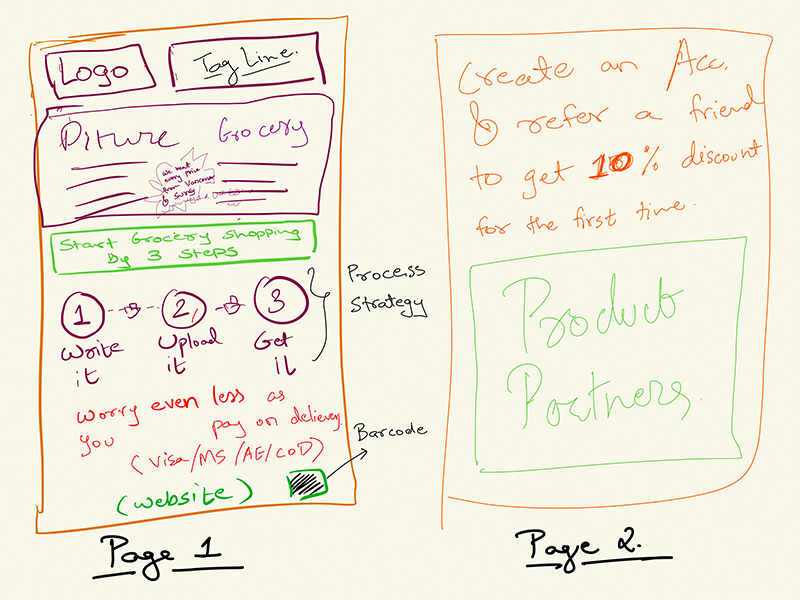 Logo
Tag Line.
Picture Grocery
we beat
every price
from Vancouver
& Surrey
Start Grocery shopping
by 3 steps
1 2 3
Write it
Upload it
Get it
Process
Strategy
Worry even less as
you pay on delievery.
(Visa/MS/AE/COD)
Barcode
(website)
Page 1
Create an Acc.
& refer a friend
to get 10% discount
for the first time.
Product
Partners.
Page 2.